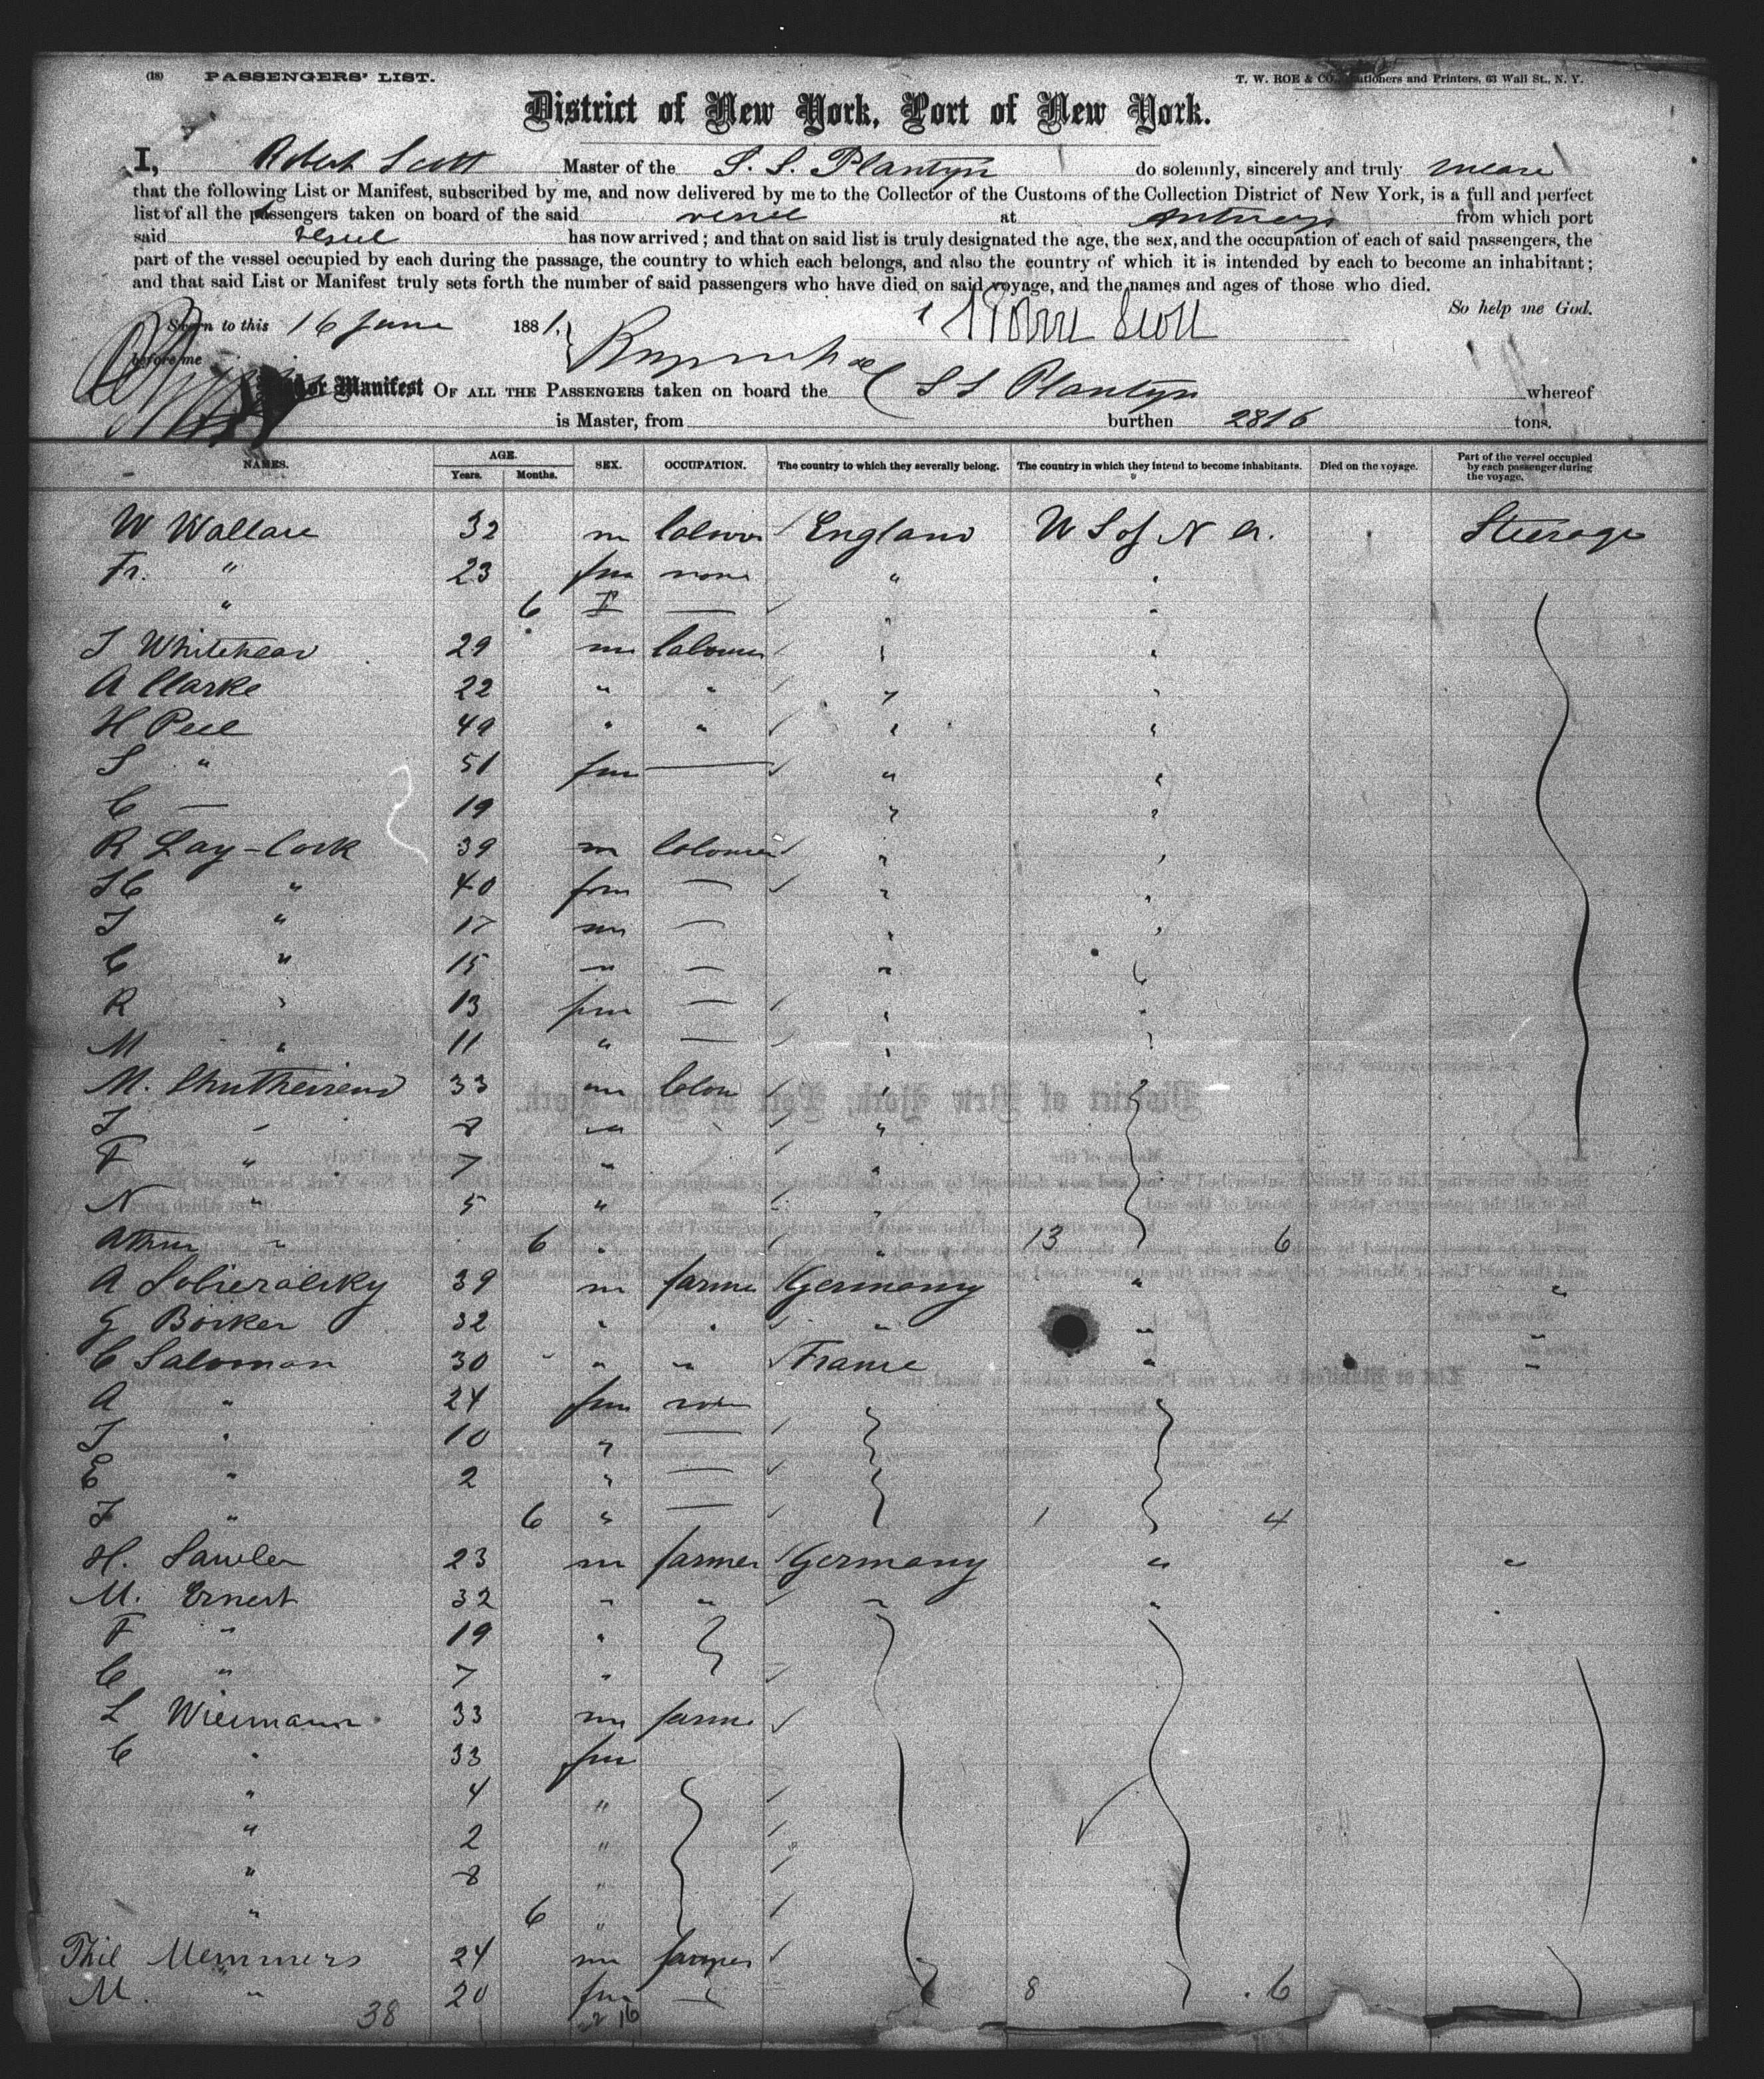 (18) PASSENGERS' LIST. T. W. ROE & CO., Stationers and Printers, 63 Wall St., N. Y.
District of New York, Port of New York.
I, Robert Scott Master of the S. S. Plantyn do solemnly, sincerely and truly swear
that the following List or Manifest, subscribed by me, and now delivered by me to the Collector of the Customs of the Collection District of New York, is a full and perfect
list of all the passengers taken on board of the said vessel at Antwerp from which port
said vessel has now arrived; and that on said list is truly designated the age, the sex, and the occupation of each of said passengers, the
part of the vessel occupied by each during the passage, the country to which each belongs, and also the country of which it is intended by each to become an inhabitant;
and that said List or Manifest truly sets forth the number of said passengers who have died on said voyage, and the names and ages of those who died.
So help me God.
Sworn to this 16 June 1881, Robert Scott
before me
List or Manifest OF ALL THE PASSENGERS taken on board the S S Plantyn whereof
is Master, from burthen 2816 tons.
NAMES. AGE. Years. Months. SEX. OCCUPATION. The country to which they severally belong. The country in which they intend to become inhabitants. Died on the voyage. Part of the vessel occupied by each passenger during the voyage.
W Wallace 32 m labour England U S of N A. Steerage
Fr. " 23 fm none " "
" 6 — " "
J Whitehead 29 m labourer " "
A Clarke 22 " " " "
H Peel 49 " " " "
S " 51 fm — " "
C — 19 " "
R Lay-Cock 39 m labourer " "
" 40 fem — " "
J " 17 m — " "
C " 15 m — "
R " 13 fem — " "
M " 11 " — " "
M. 33 m labou "
J " 8 m "
F " 7 " "
N " 5 " "
Arthur " 6 " " 13 6
A 39 m farmer Germany " "
G 32 " " " " "
C Saloman 30 " " France " "
A " 24 fem
J " 10 " —
E " 2 " —
J " 6 " — 1 4
H. 23 m farmer Germany " "
M. Ernest 32 " " " " "
F " 19 "
C " 7 "
L Wiemann 33 m farme
C " 33 fem
" 4 "
" 2 "
" 8 "
" 6 "
Phil Memmers 24 m farmer
M. " 20 fm — 8 6
38 16